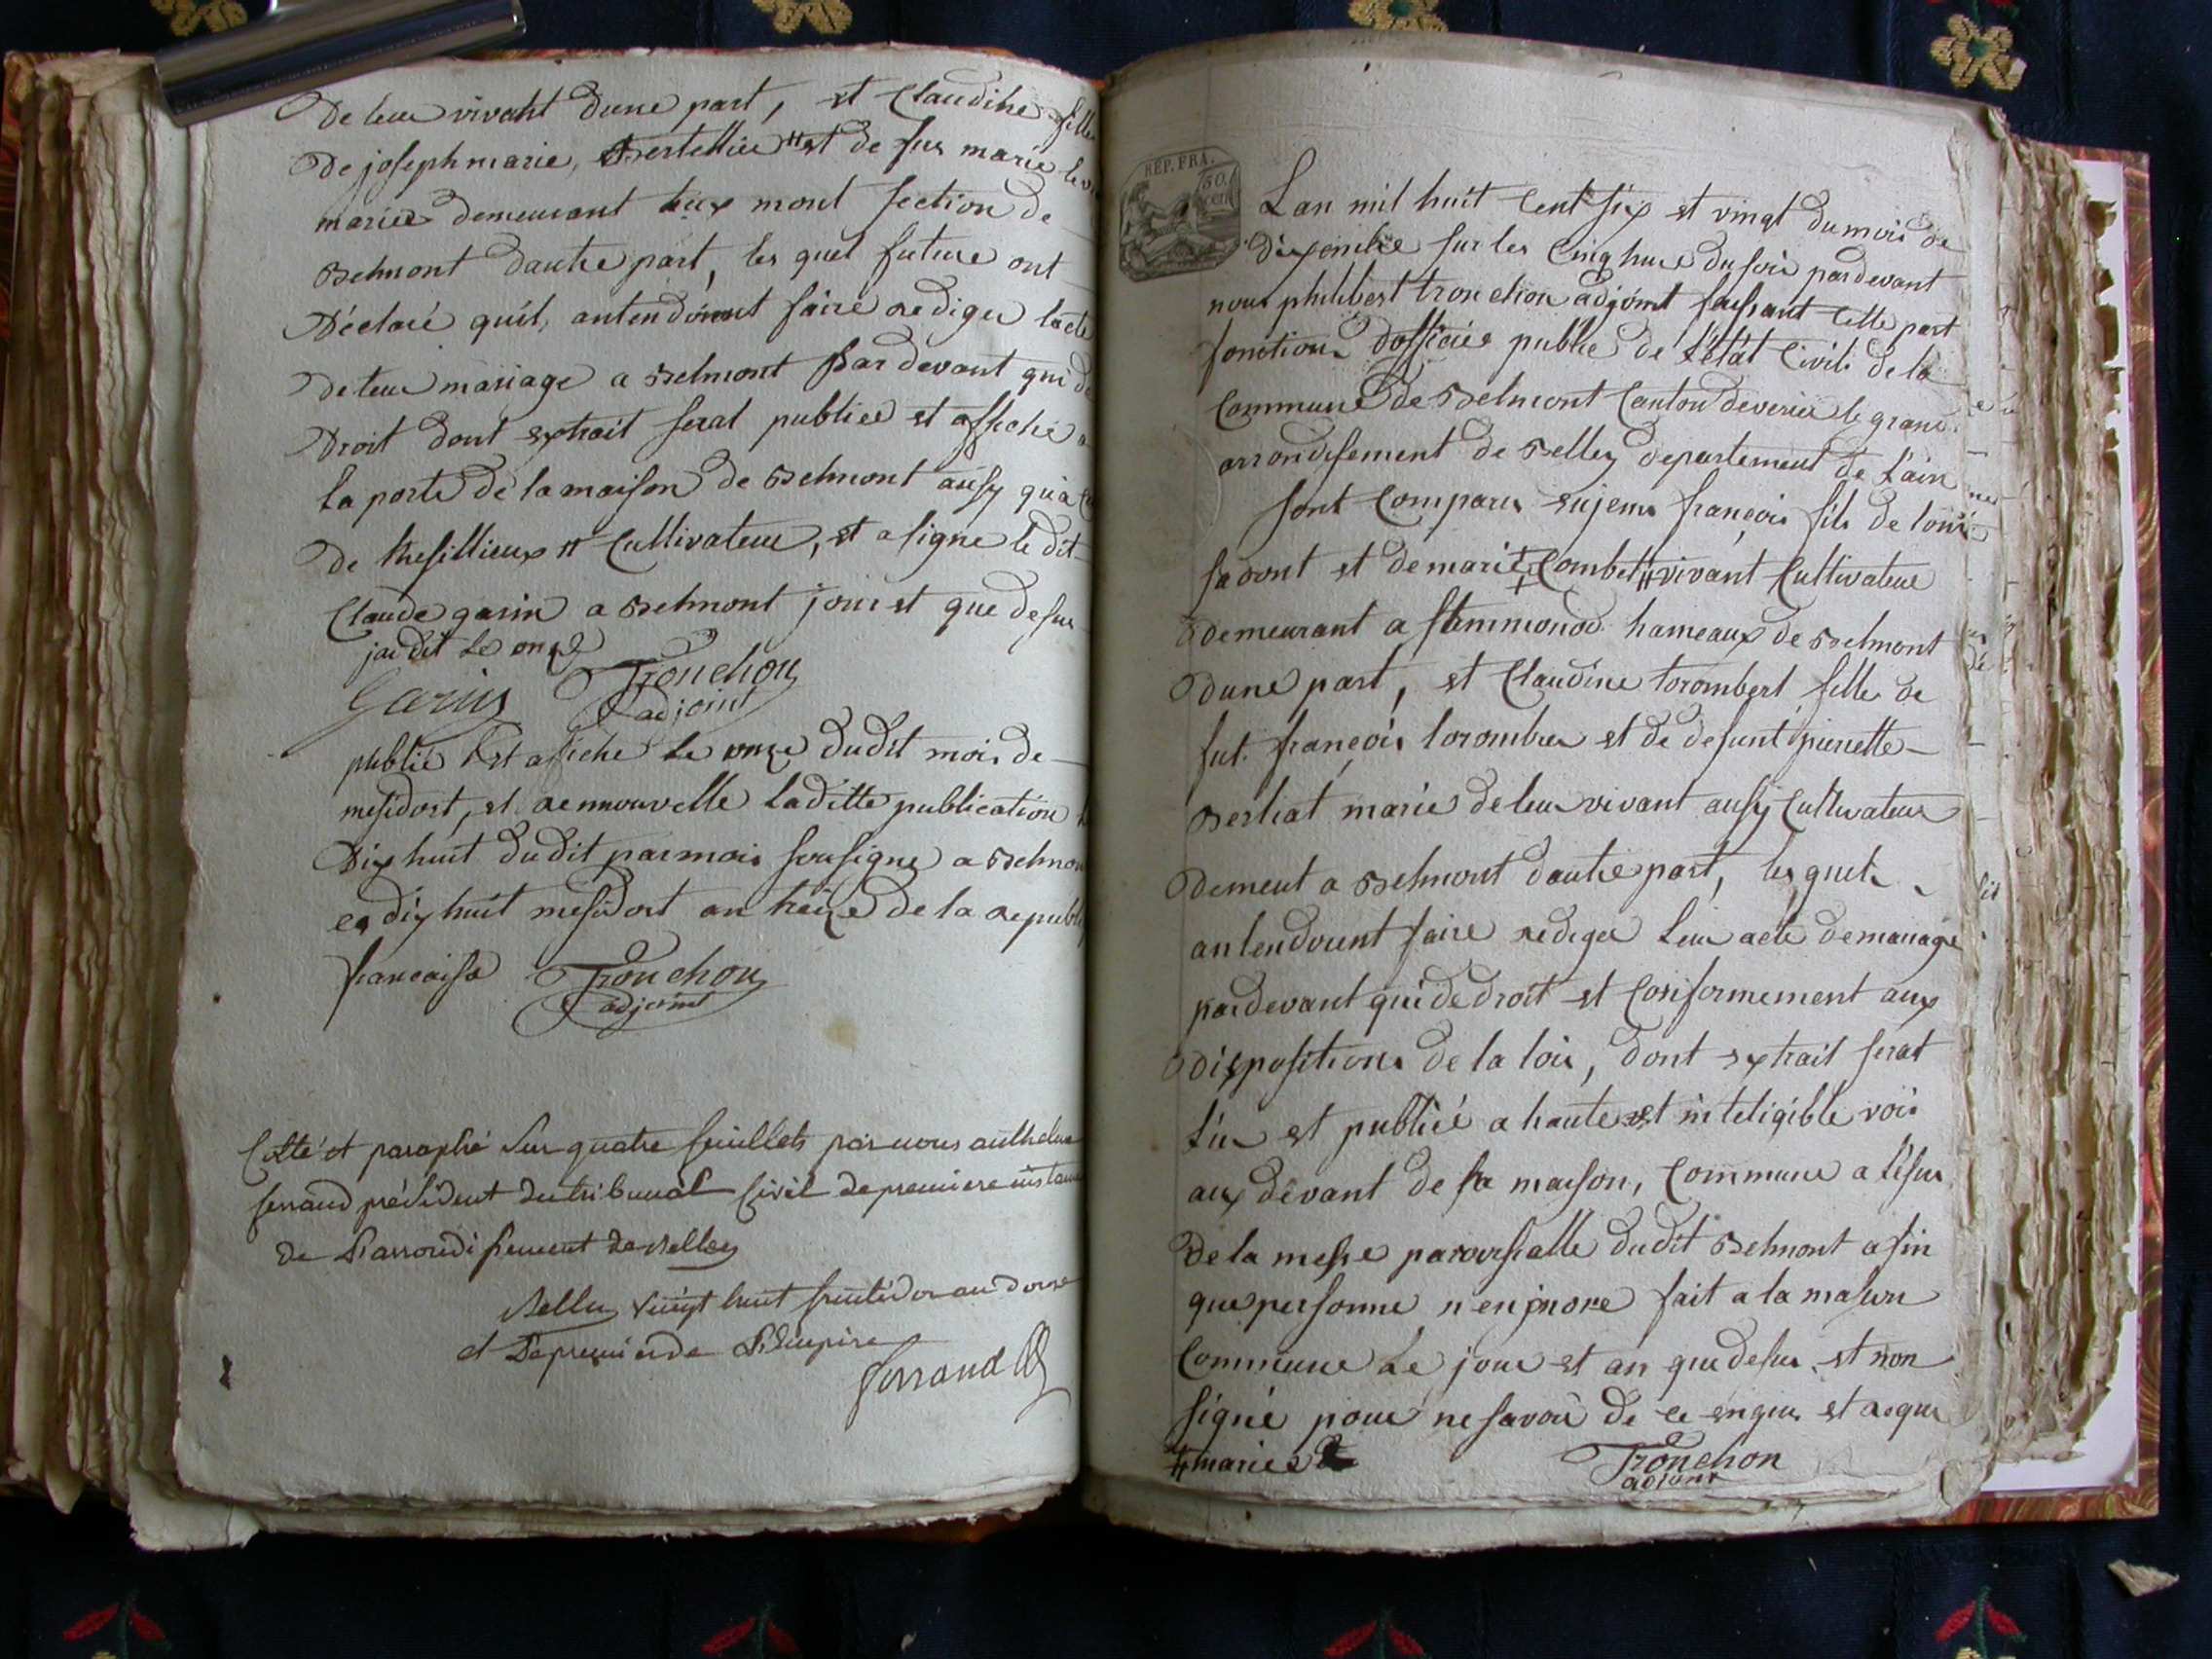 De leur vivant dune part, et Claudine fille
De joseph marie, et de feu marie
mariés demeurant aux mont section de
Belmont dautre part, les quel future ont
Déclaré quil antendoient faire rediger lacte
De leur mariage a Belmont par devant qui de
Droit dont extrait serat publiee et affiché a
la porte de la maison de Belmont ausy qu'a
de thesillieux # Cultivateur, et a signe le dit
Claude garin a Belmont jour et que desus
jai dit le onze
Garin Tronchon
adjoint
publié Et afiche Le onze dudit mois de
mesidort, et renouvelle laditte publication
Dix huit dudit par moi sousigne a Belmon
ce dix huit mesidort an treize de la republi
francaise Tronchon
adjoint
Cotté et paraphé sur quatre feuillets par nous anthelme
ferrand président du tribunal civil de premiere instance
de L'arrondissement de Belley
Belley vingt huit fructidor an douze
et Le premier de L'Empire
ferrand
REP. FRA.
50.
cen
Lan mil huit Cent six et vingt du mois de
dixembre sur les Cinq hure du soir pardevant
nous philibert tronchon adjoint faissant Cette part
fonction dofficier public de L'état Civil de la
Commune de Belmont Canton deverieu le grand
arrondisement de Belley departement de L'ain
sont Comparus sujems françois fils de louis
et de marie Combet # vivant Cultivateur
demeurant a stemmonod hameaux de Belmont
Dune part, et Claudine torombert fille de
fut françois torombert et de defunt pierrette
Berliat marie de leur vivant ausy Cultivateur
demeut a Belmont dautre part, les quels
antendoient faire rediger Leur acte demariage
pardevant qui de droit et Conformement aux
dispositions de la loix, dont extrait serat
Lu et publié a haute et inteligible voix
aux devant de la maison, Commune a L'isus
de la messe paroissialle dudit Belmont afin
que personne n'en jnore fait a la maison
Commune Le jour et an que desus et non
signé pour ne savoir de ce enquis et requis
# mariés
Tronchon
adjoint